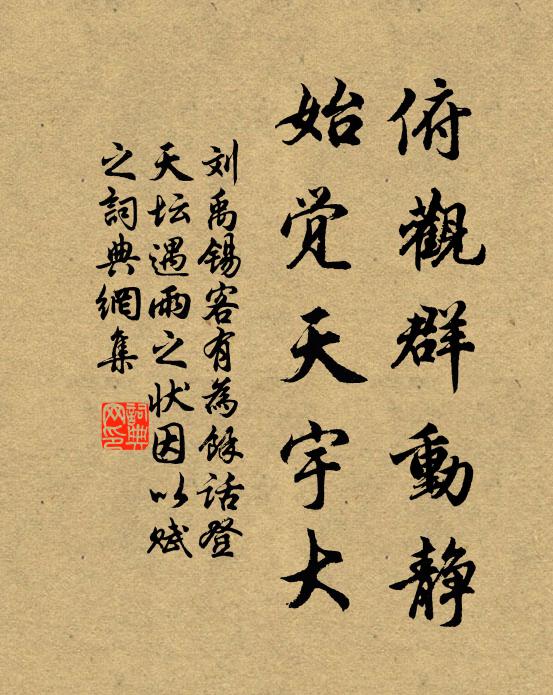 俯觀群動静
始觉天宇大
刘禹锡客有為餘话登
天坛遇雨之状因以赋
之詞典網集
詞典网印